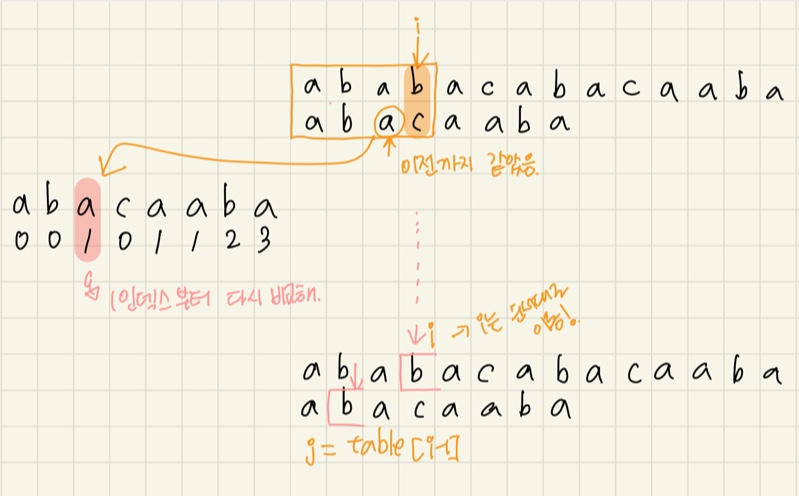 i
a b a b a c a b a c a a b a
a b a c a a b a
이전까지 같았음.
a b a c a a b a
0 0 1 0 1 1 2 3
1인덱스부터 다시 비교해.
i → i는
이동!
a b a b a c a b a c a a b a
a b a c a a b a
j = table[i-1]